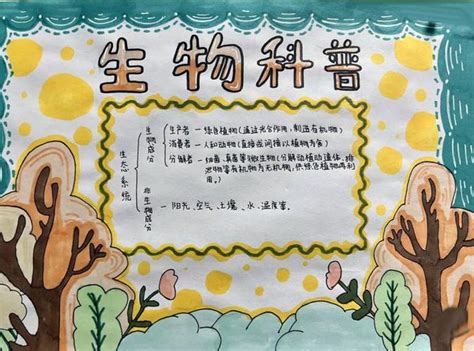 生物科普
生态系统
生物成分
生产者 — 绿色植物(通过光合作用,制造有机物)
消费者 — 人和动物(直接或间接以植物为食)
分解者 — 细菌、真菌等微生物(分解动植物遗体、排
泄物等有机物为无机物,供绿色植物再利
用。)
非生物成分
— 阳光、空气、土壤、水、温度等。